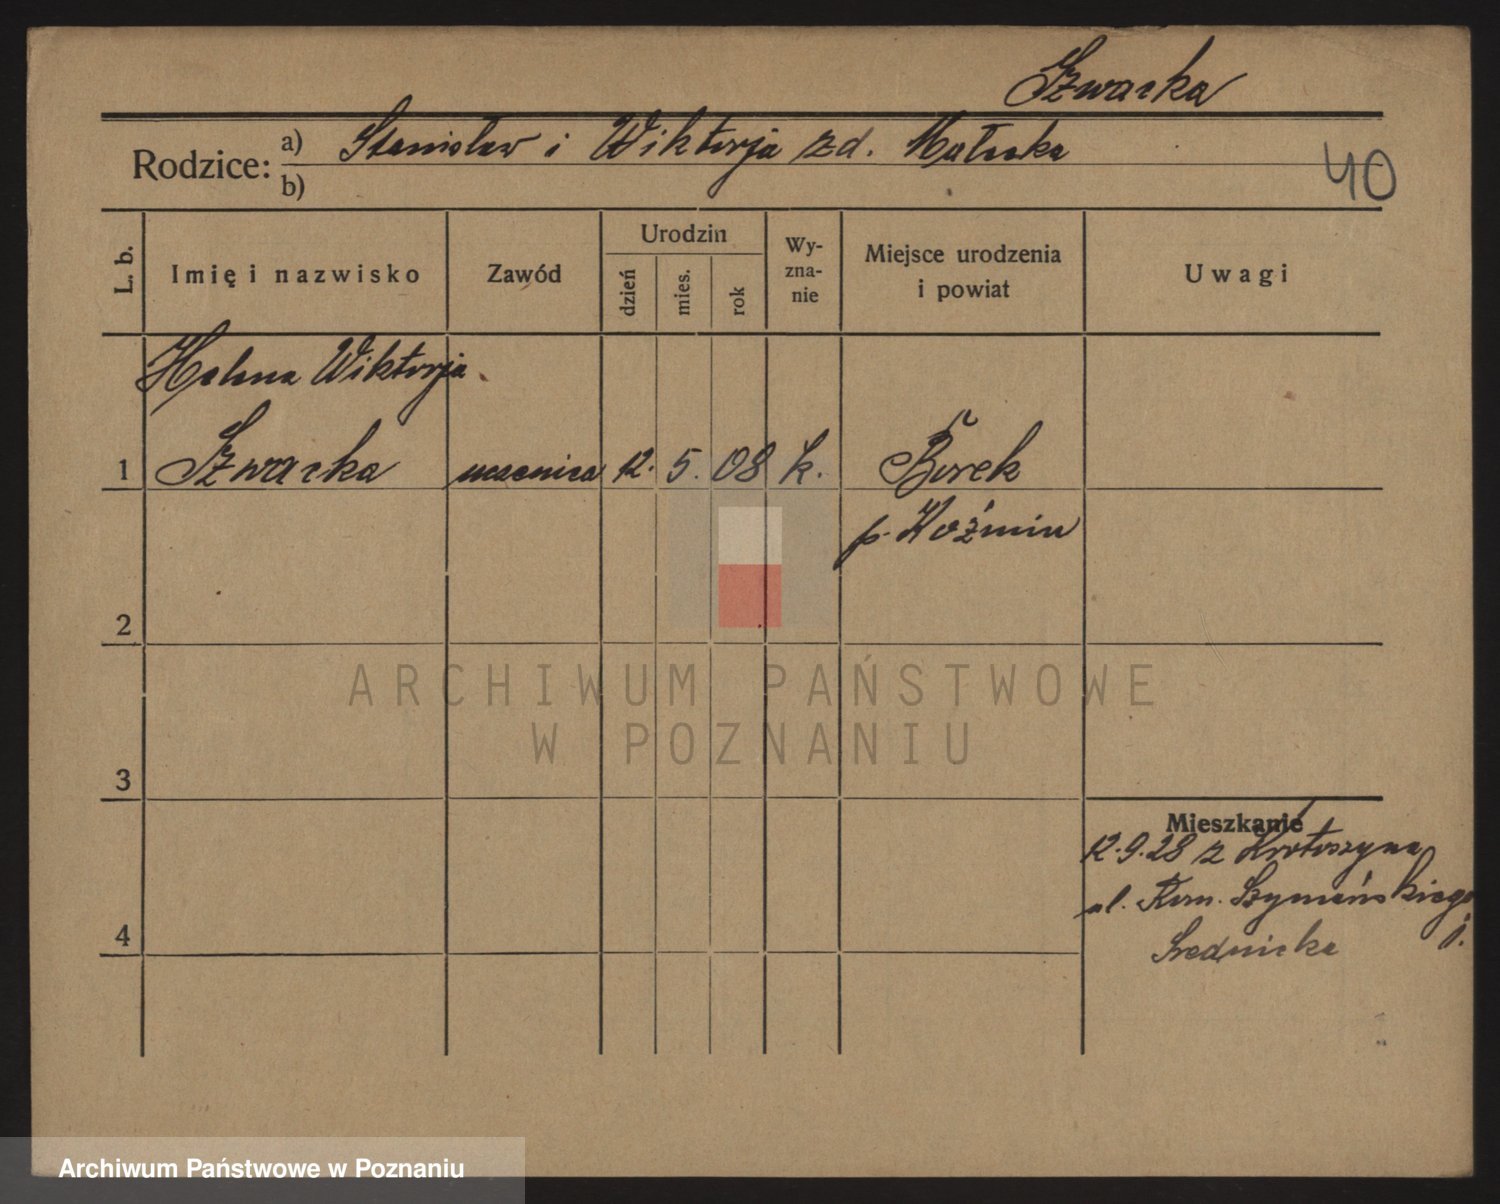 Szwarcka
Rodzice: a) Stanisław i Wiktorja zd. Małecka
b)
40
L. b. Imię i nazwisko Zawód Urodzin dzień mies. rok Wyznanie Miejsce urodzenia i powiat Uwagi
Helena Wiktorja
1 Szwarcka uczenica 12. 5. 08 k. Borek
p. Koźmin
2
ARCHIWUM PAŃSTWOWE
W POZNANIU
3
Mieszkanie
12.9.28 z Krotoszyna
ul. Szymańskiego
4
Średnicka
Archiwum Państwowe w Poznaniu